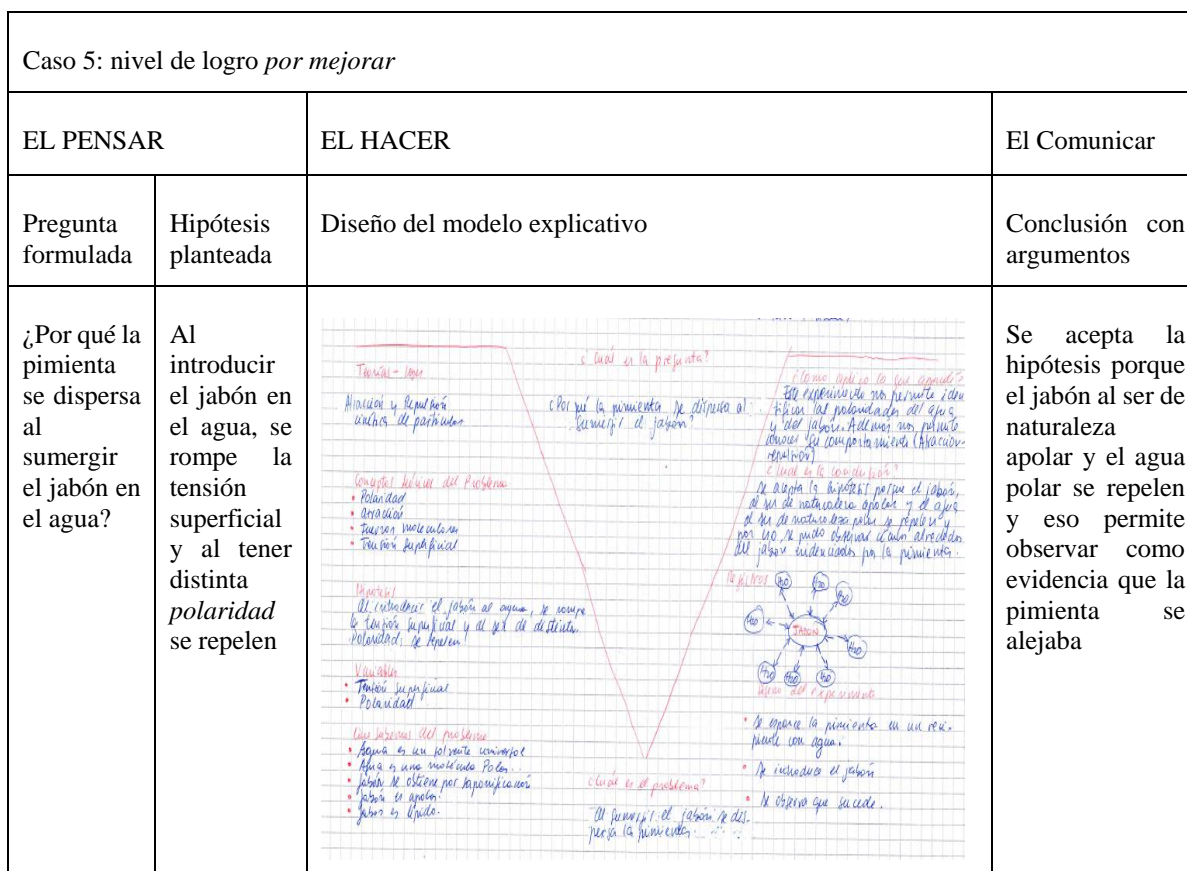 Caso 5: nivel de logro por mejorar
EL PENSAR
EL HACER
El Comunicar
Pregunta
formulada
Hipótesis
planteada
Diseño del modelo explicativo
Conclusión con
argumentos
¿Por qué la
pimienta
se dispersa
al
sumergir
el jabón en
el agua?
Al
introducir
el jabón en
el agua, se
rompe la
tensión
superficial
y al tener
distinta
polaridad
se repelen
¿Cuál es la pregunta?
¿Por qué la pimienta se dispersa al
sumergir el jabón?
Teorías - leyes
Atracción y Repulsión
de partículas
Conceptos básicos del Problema
• Polaridad
• atracción
• Fuerzas moleculares
• Tensión Superficial
Hipótesis
Al introducir el jabón al agua, se rompe
la tensión superficial y al ser de distinta
Polaridad, se repelen
Variables
• Tensión superficial
• Polaridad
Que sabemos del problema
• Agua es un solvente universal
• Agua es una molécula Polar.
• Jabón se obtiene por saponificación
• Jabón es apolar.
• Jabón es lípido.
¿Cuál es el problema?
Al sumergir el jabón se dis-
persa la pimienta.
¿Como aplico lo que aprendí?
Este experimento nos permite iden-
tificar las polaridades del agua
y del jabón. Además nos permite
conocer su comportamiento (Atracción-
repulsión)
¿Cuál es la conclusión?
Se acepta la hipótesis porque el jabón,
al ser de naturaleza apolar y el agua
al ser de naturaleza polar se repelen y
por eso se pudo observar alrededor
del jabón evidenciados por la pimienta.
Registros
H2O
H2O
H2O
H2O
JABON
H2O
H2O
H2O
H2O
del experimento
• Se esparce la pimienta en un reci-
piente con agua.
• Se introduce el jabón
• Se observa que sucede.
Se acepta la
hipótesis porque
el jabón al ser de
naturaleza
apolar y el agua
polar se repelen
y eso permite
observar como
evidencia que la
pimienta se
alejaba